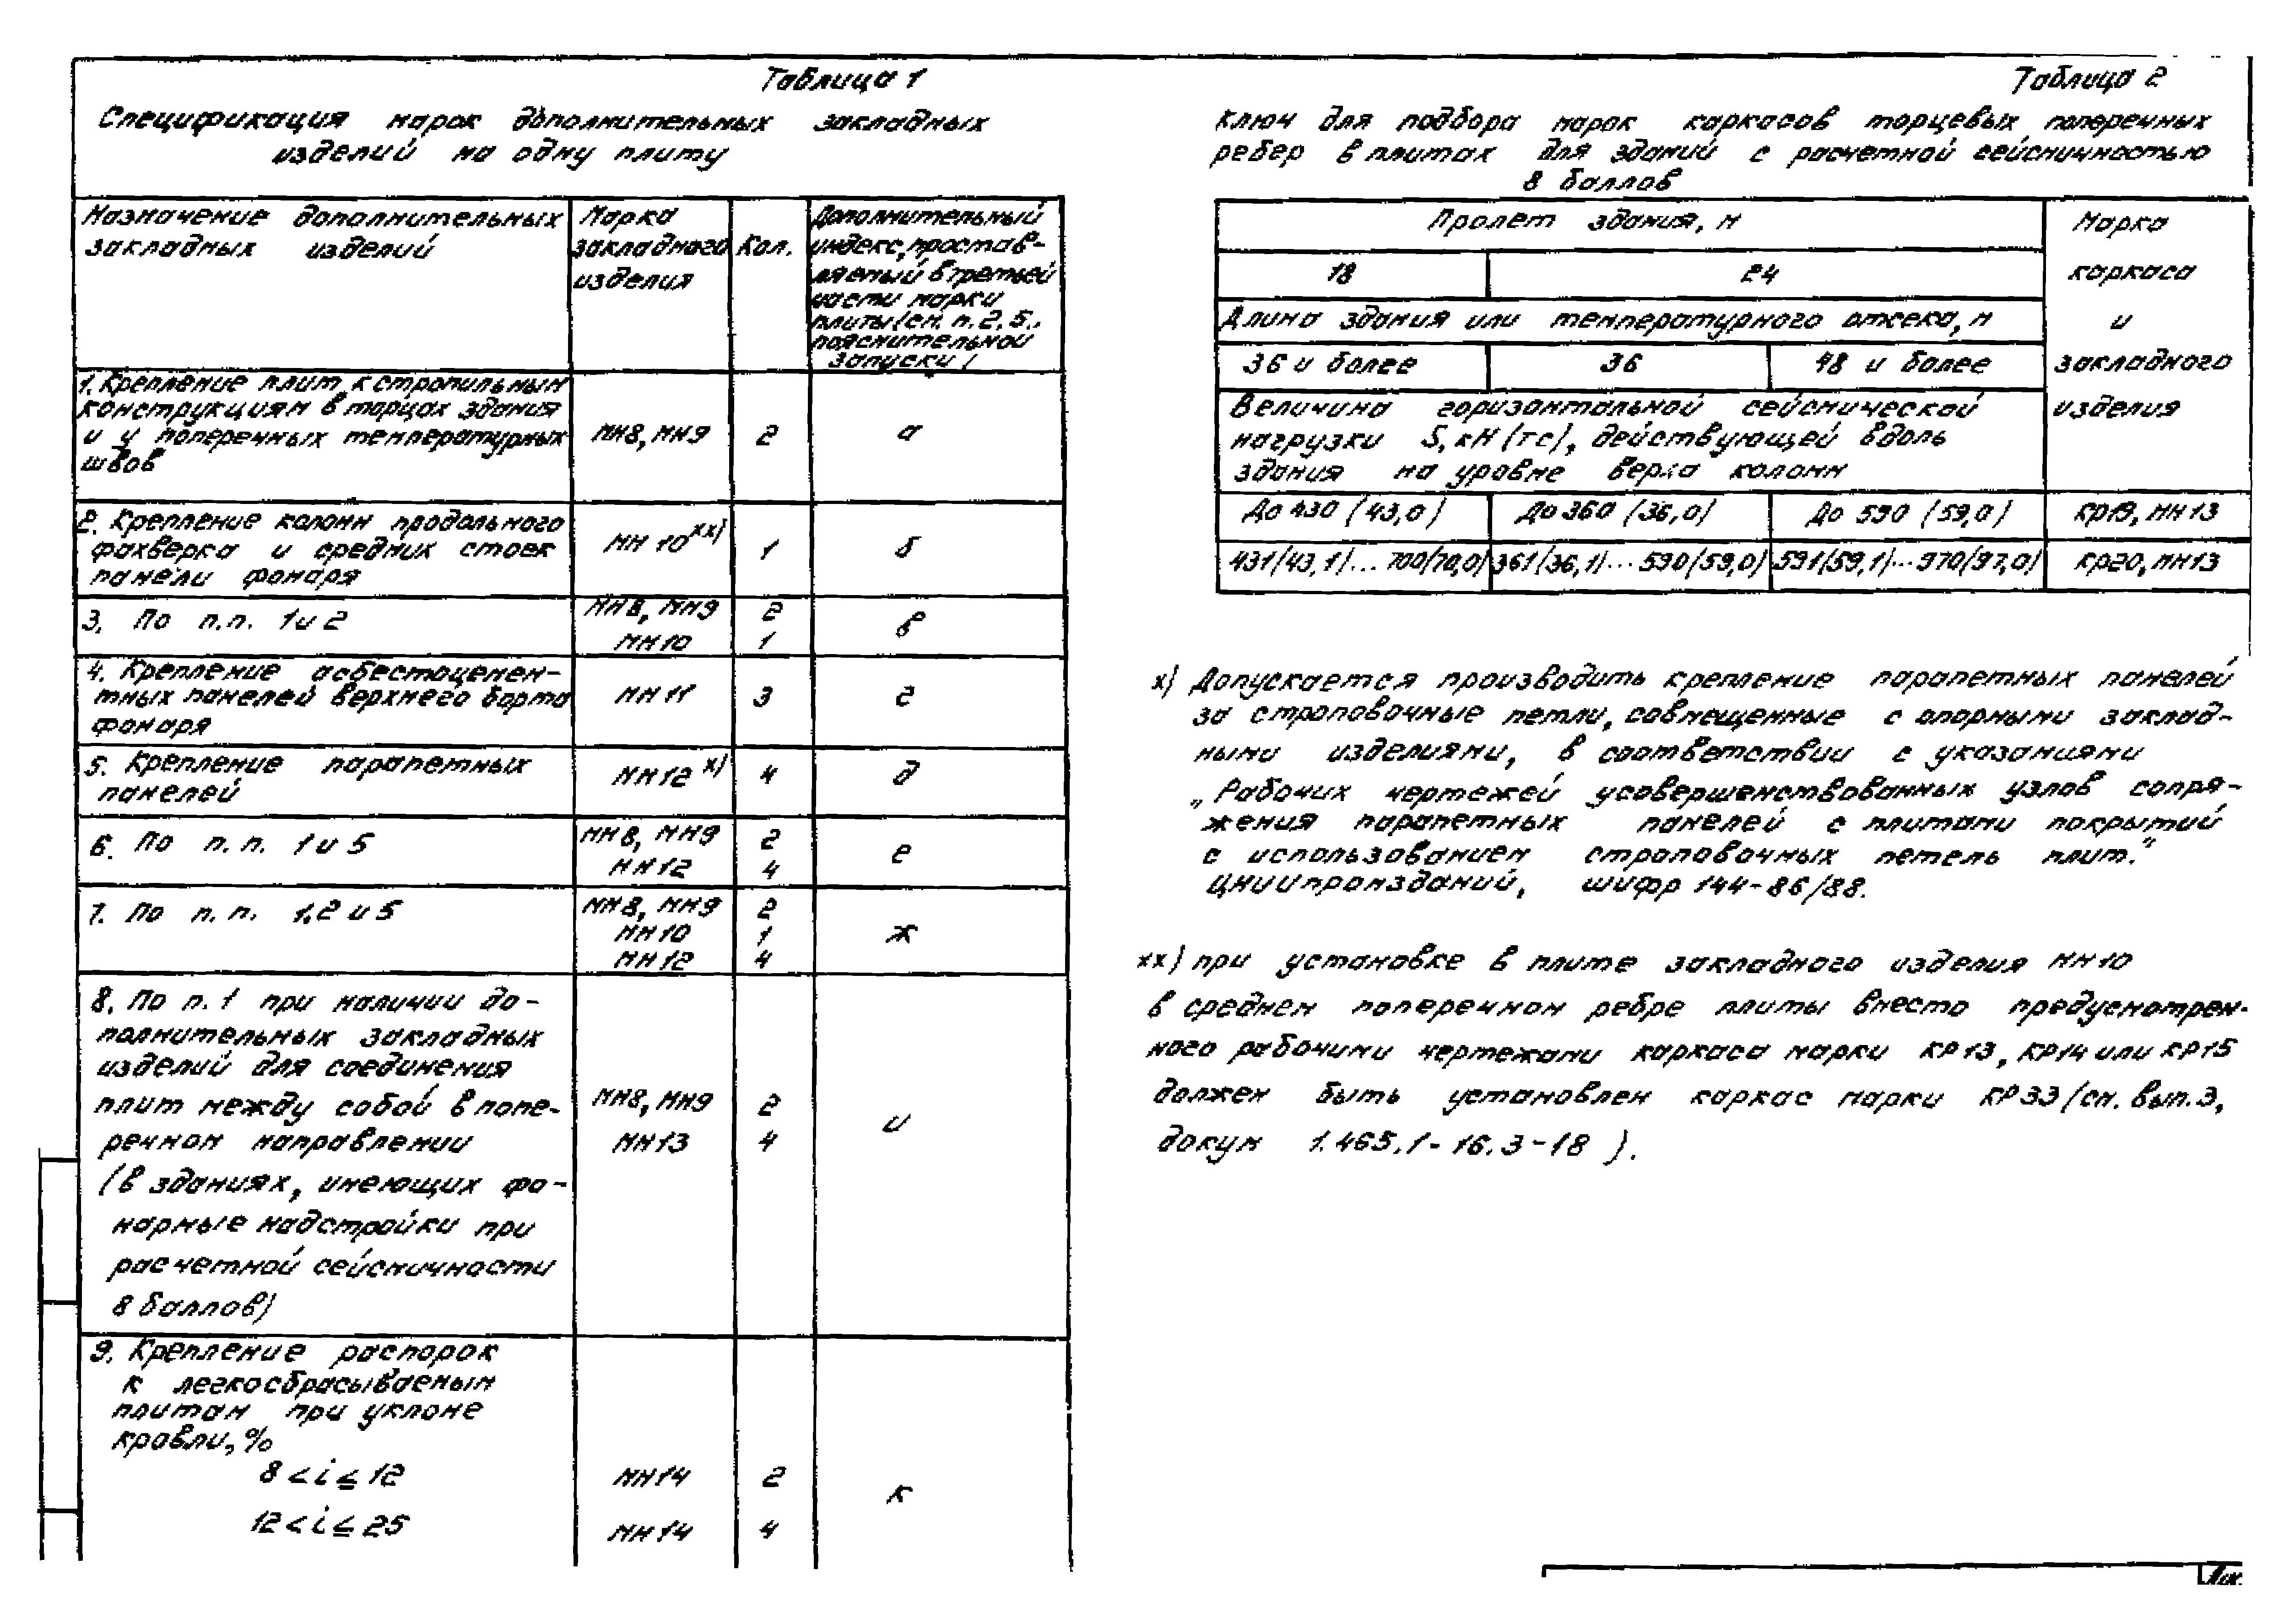 Таблица 1
Спецификация марок дополнительных закладных
изделий на одну плиту
Назначение дополнительных
закладных изделий
Марка
закладного
изделия
Кол.
Дополнительный
индекс, простав-
ляемый в третьей
части марки
плиты (см. п. 2.5.,
пояснительной
записки)
1. Крепление плит к стропильным
конструкциям в торцах здания
и у поперечных температурных
швов
МН8, МН9
2
а
2. Крепление колонн продольного
фахверка и средних стоек
панели фонаря
МН 10 хх)
1
б
3. По п.п. 1 и 2
МН8, МН9 2
МН10 1
в
4. Крепление асбестоцемен-
тных панелей верхнего борта
фонаря
МН 11
3
г
5. Крепление парапетных
панелей
МН12 х)
4
д
6. По п.п. 1 и 5
МН8, МН9 2
МН12 4
е
7. По п.п. 1,2 и 5
МН8, МН9 2
МН10 1
МН12 4
ж
8. По п. 1 при наличии до-
полнительных закладных
изделий для соединения
плит между собой в попе-
речном направлении
(в зданиях, имеющих фо-
нарные надстройки при
расчетной сейсмичности
8 баллов)
МН8, МН9 2
МН13 4
и
9. Крепление распорок
к легкосбрасываемым
плитам при уклоне
кровли, %
8 < i ≤ 12 МН14 2
12 < i ≤ 25 МН14 4
к
Таблица 2
Ключ для подбора марок каркасов торцевых поперечных
ребер в плитах для зданий с расчетной сейсмичностью
8 баллов
Пролет здания, м
Марка
каркаса
и
закладного
изделия
18 24
Длина здания или температурного отсека, м
36 и более 36 48 и более
Величина горизонтальной сейсмической
нагрузки S, кН (тс), действующей вдоль
здания на уровне верха колонн
До 430 (43,0) До 360 (36,0) До 590 (59,0) КР19, МН13
431(43,1)... 700(70,0) 361(36,1)... 590(59,0) 591(59,1)... 970(97,0) КР20, МН13
х) Допускается производить крепление парапетных панелей
за строповочные петли, совмещенные с опорными заклад-
ными изделиями, в соответствии с указаниями
„Рабочих чертежей усовершенствованных узлов сопря-
жения парапетных панелей с плитами покрытий
с использованием строповочных петель плит."
ЦНИИпромзданий, шифр 144-86/88.
хх) при установке в плите закладного изделия МН10
в среднем поперечном ребре плиты вместо предусмотрен-
ного рабочими чертежами каркаса марки КР13, КР14 или КР15
должен быть установлен каркас марки КР33 (см. вып. 3,
докум 1.465.1-16.3-18 ).